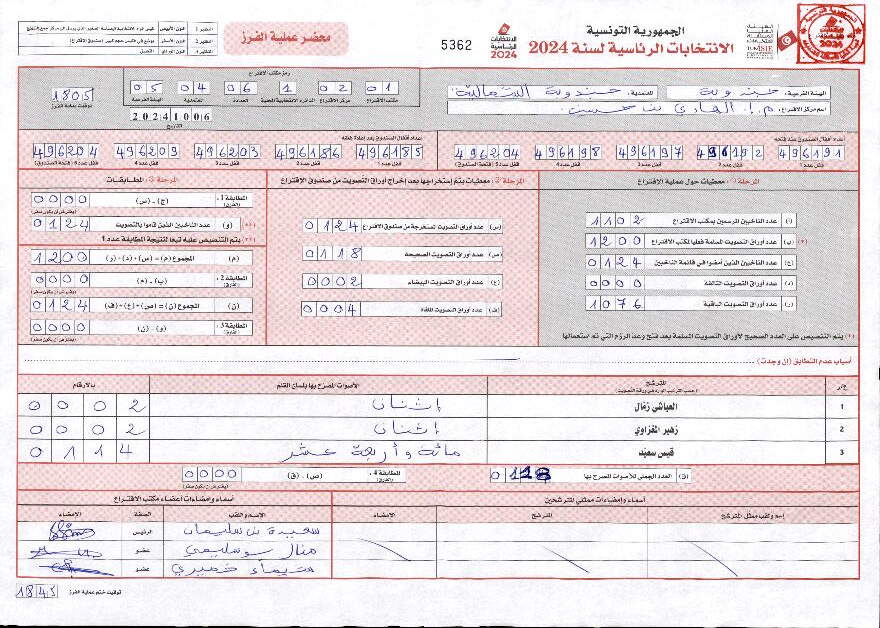 الجمهورية التونسية
الانتخابات الرئاسية لسنة 2024
5362
محضر عملية الفرز
الهيئة الفرعية: جندوبة
المعتمدية: جندوبة الشمالية
اسم مركز الاقتراع:
رمز مكتب الاقتراع
01 02 1 06 04 05
مكتب الاقتراع مركز الاقتراع الدائرة الانتخابية المحلية العمادة المعتمدية الهيئة الفرعية
20241006
التاريخ
1805
توقيت بداية الفرز
عدد أقفال الصندوق عند فتحه
496191 496192 496197 496198 496204
قفل عدد 1 قفل عدد 2 قفل عدد 3 قفل عدد 4 قفل عدد 5 (فتحة الصندوق)
عدد أقفال الصندوق بعد إعادة غلقه
496185 496186 496203 496209 496204
قفل عدد 1 قفل عدد 2 قفل عدد 3 قفل عدد 4 قفل عدد 5 (فتحة الصندوق)
المرحلة 1: معطيات حول عملية الاقتراع
(أ) عدد الناخبين المرسمين بمكتب الاقتراع 1102
(ب) عدد أوراق التصويت المسلمة فعليا لمكتب الاقتراع 1200
(ج) عدد الناخبين الذين أمضوا في قائمة الناخبين 0124
(د) عدد أوراق التصويت التالفة 0000
(ر) عدد أوراق التصويت الباقية 1076
(*) يتم التنصيص على العدد الصحيح لأوراق التصويت المسلمة بعد فتح وعد الرزم التي تم استعمالها
المرحلة 2: معطيات يتم إستخراجها بعد إخراج أوراق التصويت من صندوق الاقتراع
(س) عدد أوراق التصويت المستخرجة من صندوق الاقتراع 0124
(ص) عدد أوراق التصويت الصحيحة 0118
(ع) عدد أوراق التصويت البيضاء 0002
(ف) عدد أوراق التصويت الملغاة 0004
المرحلة 3: المطابقات
المطابقة 1: (الفارق) (ج) - (س) 0000
(يفترض أن يكون صفر)
(و) عدد الناخبين الذين قاموا بالتصويت 0124
(**) يتم التنصيص عليه تبعا لنتيجة المطابقة عدد 1
(م) المجموع (م) = (س) + (د) + (ر) 1200
المطابقة 2: (الفارق) (ب) - (م) 0000
(يفترض أن يكون صفر)
(ن) المجموع (ن) = (ص) + (ع) + (ف) 0124
المطابقة 3: (الفارق) (و) - (ن) 0000
(يفترض أن يكون صفر)
أسباب عدم التطابق (إن وجدت)
ع/ر المترشح الأصوات المصرح بها بلسان القلم بالأرقام
(حسب الترتيب الوارد في ورقة التصويت)
1 العياشي زمال إثنان 0002
2 زهير المغزاوي إثنان 0002
3 قيس سعيد مائة وأربعة عشر 0114
(ق) العدد الجملي للأصوات المصرح بها 0118
المطابقة 4: (الفارق) (ص) - (ق) 0000
(يفترض أن يكون صفر)
أسماء وإمضاءات ممثلي المترشحين
إسم ولقب ممثل المترشح المترشح الإمضاء
أسماء وإمضاءات أعضاء مكتب الاقتراع
الاسم واللقب الصفة الإمضاء
سعيدة بن سليمان رئيس
منال سويلمي عضو
شيماء خميري عضو
توقيت ختم عملية الفرز 1845